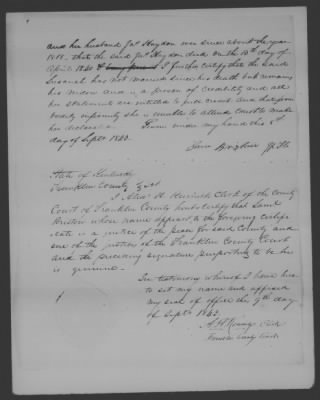 and her husband Jas Haydon was since about the year
1818. that the said Jas Haydon died on the 10th day of
April 1840 & I further certify that the said
Susanah has not married since his death but remains
his widow and is a person of credibility and all
her statements are intitled to full credit and that from
bodily infirmity she is unable to attend court to make
her declaration Given under my hand this 8th
day of Sept 1843.
State of Kentucky
Franklin County Sct
I Alexr H Rennick Clerk of the County
Court of Franklin County hereby certify that Saml
whose name appears to the foregoing certifi
cate is a justice of the peace for said County and
one of the justices of the Franklin County Court
and the preceding signature purporting to be his
is genuine.
In testimony whereof I have here
to set my name and affixed
my seal of office this 9th day
of Sept 1843.
A H Rennick Clerk
Franklin County Court